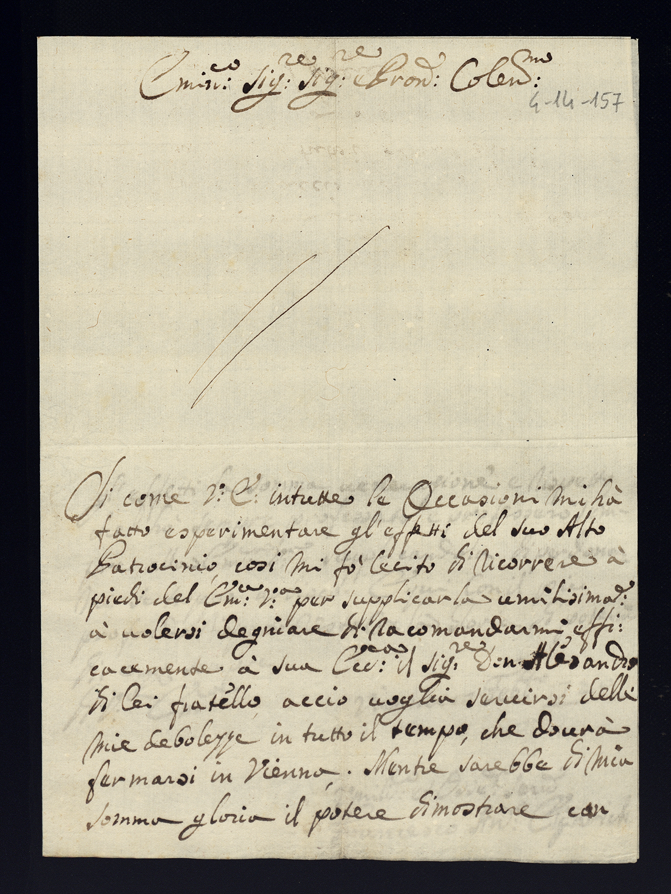 Emin:co Sig:re Sig:re Pron: Colen:mo
4-14-157
Si come V: E: in tutte le Occasioni mi hà
fatto esperimentare gl'effetti del suo Alto
Patrocinio, cosi mi fò lecito di ricorrere à
piedi del Em:a V:a per supplicarla umilisimad:
à volersi degniare di racomandarmi effi:
cacemente à sua Ecc:a il Sig:re Don Alesandro
di lei fratello, accio voglia servirsi delle
mie debolezze in tutto il tempo, che dourà
fermarsi in Vienna. Mentre sarebbe di mia
somma gloria il potere dimostrare con